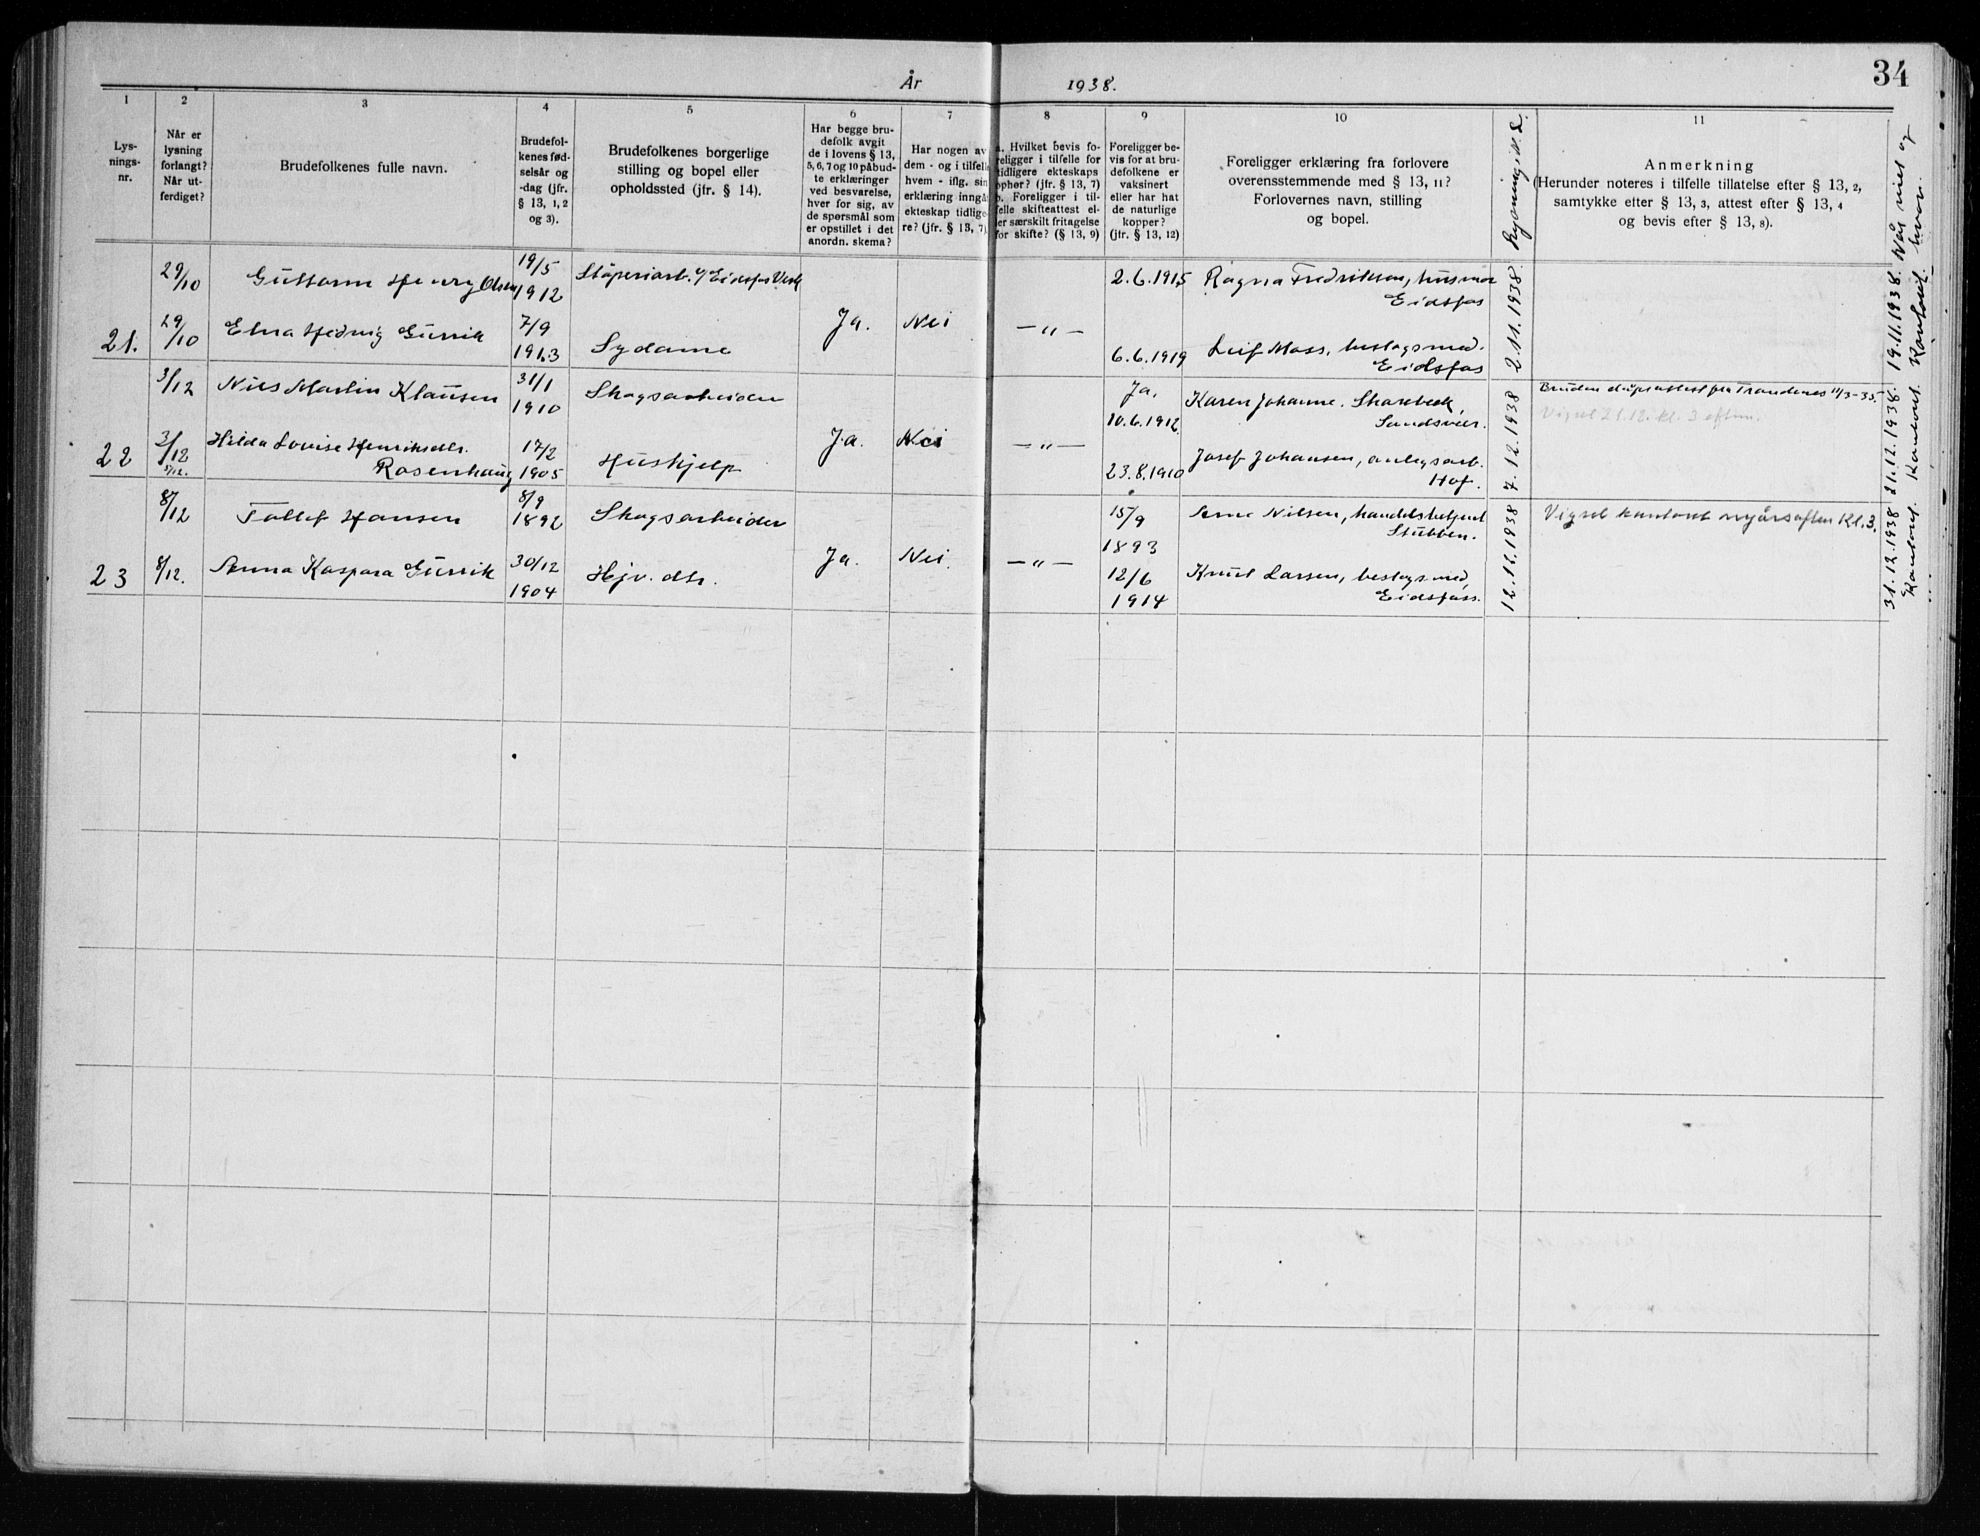 34
År 1938.
1
Lys-
nings-
nr.
2
Når er
lysning
forlangt?
Når ut-
ferdiget?
3
Brudefolkenes fulle navn.
4
Brudefol-
kenes fød-
selsår og
-dag (jfr.
§ 13, 1, 2
og 3).
5
Brudefolkenes borgerlige
stilling og bopel eller
opholdssted (jfr. § 14).
6
Har begge bru-
defolk avgit
de i lovens § 13,
5, 6, 7 og 10 påbud-
te erklæringer
ved besvarelse,
hver for sig, av
de spørsmål som
er opstillet i det
anordn. skema?
7
Har nogen av
dem - og i tilfelle
hvem - iflg. sin
erklæring inngå
ekteskap tidlige-
re? (jfr. § 13, 7)
8
a. Hvilket bevis fo-
religger i tilfelle for
tidligere ekteskaps
ophør? (jfr. § 13, 7)
b. Foreligger i til-
felle skifteattest el-
ler særskilt fritagelse
for skifte? (§ 13, 9)
9
Foreligger be-
vis for at bru-
defolkene er
vaksinert
eller har hat
de naturlige
kopper?
(jfr. § 13, 12)
10
Foreligger erklæring fra forlovere
overensstemmende med § 13, 11?
Forlovernes navn, stilling
og bopel.
Lysning i N. L.
11
Anmerkning
(Herunder noteres i tilfelle tillatelse efter § 13, 2,
samtykke efter § 13, 3, attest efter § 13, 4
og bevis efter § 13, 8).
Når viet og
hvor.
29/10
Henry Olsen
19/5
1912
Støperiarb. v/ Eidsfos Verk
2.6.1915
Ragna Fredriksen, husmor
Eidsfos
21.
29/10
Elna Hedvig Gurrik
7/9
1913
Sydame
Ja.
Nei
— " —
6.6.1919
Leif Moss, beslagsmed.
Eidsfos
2.11.1938.
19.11.1938.
Kontoret.
3/12
Nils Martin Klausen
31/1
1910
Skogsarbeider
Ja,
10.6.1912
Karen Johanne
Sandsvær.
Bruden dåpsattest fra Trondenes 11/3-35.
Vigsel 21.12. kl. 3 eftm.
22
3/12
Hilda Lovise Henriksdtr.
Rosenhaug
17/2
1905
Hushjelp
Ja.
Nei
— " —
23.8.1910
Josef Johansen, anlegsarb.
Hof.
7.12.1938
21.12.1938.
Kontoret.
8/12
Tollef Hansen
8/9
1892
Skogsarbeider
15/9
1893
Arne Nilsen, handelsbetjent
Stubben.
Vigsel kontoret nyårsaften Kl. 3.
23
8/12.
Anna Kaspara Gurrik
30/12
1904
Hjv. dtr.
Ja.
Nei.
— " —
12/6
1914
Knut Larsen, beslagsmed,
Eidsfoss.
12.12.1938
31.12.1938
Kontoret.